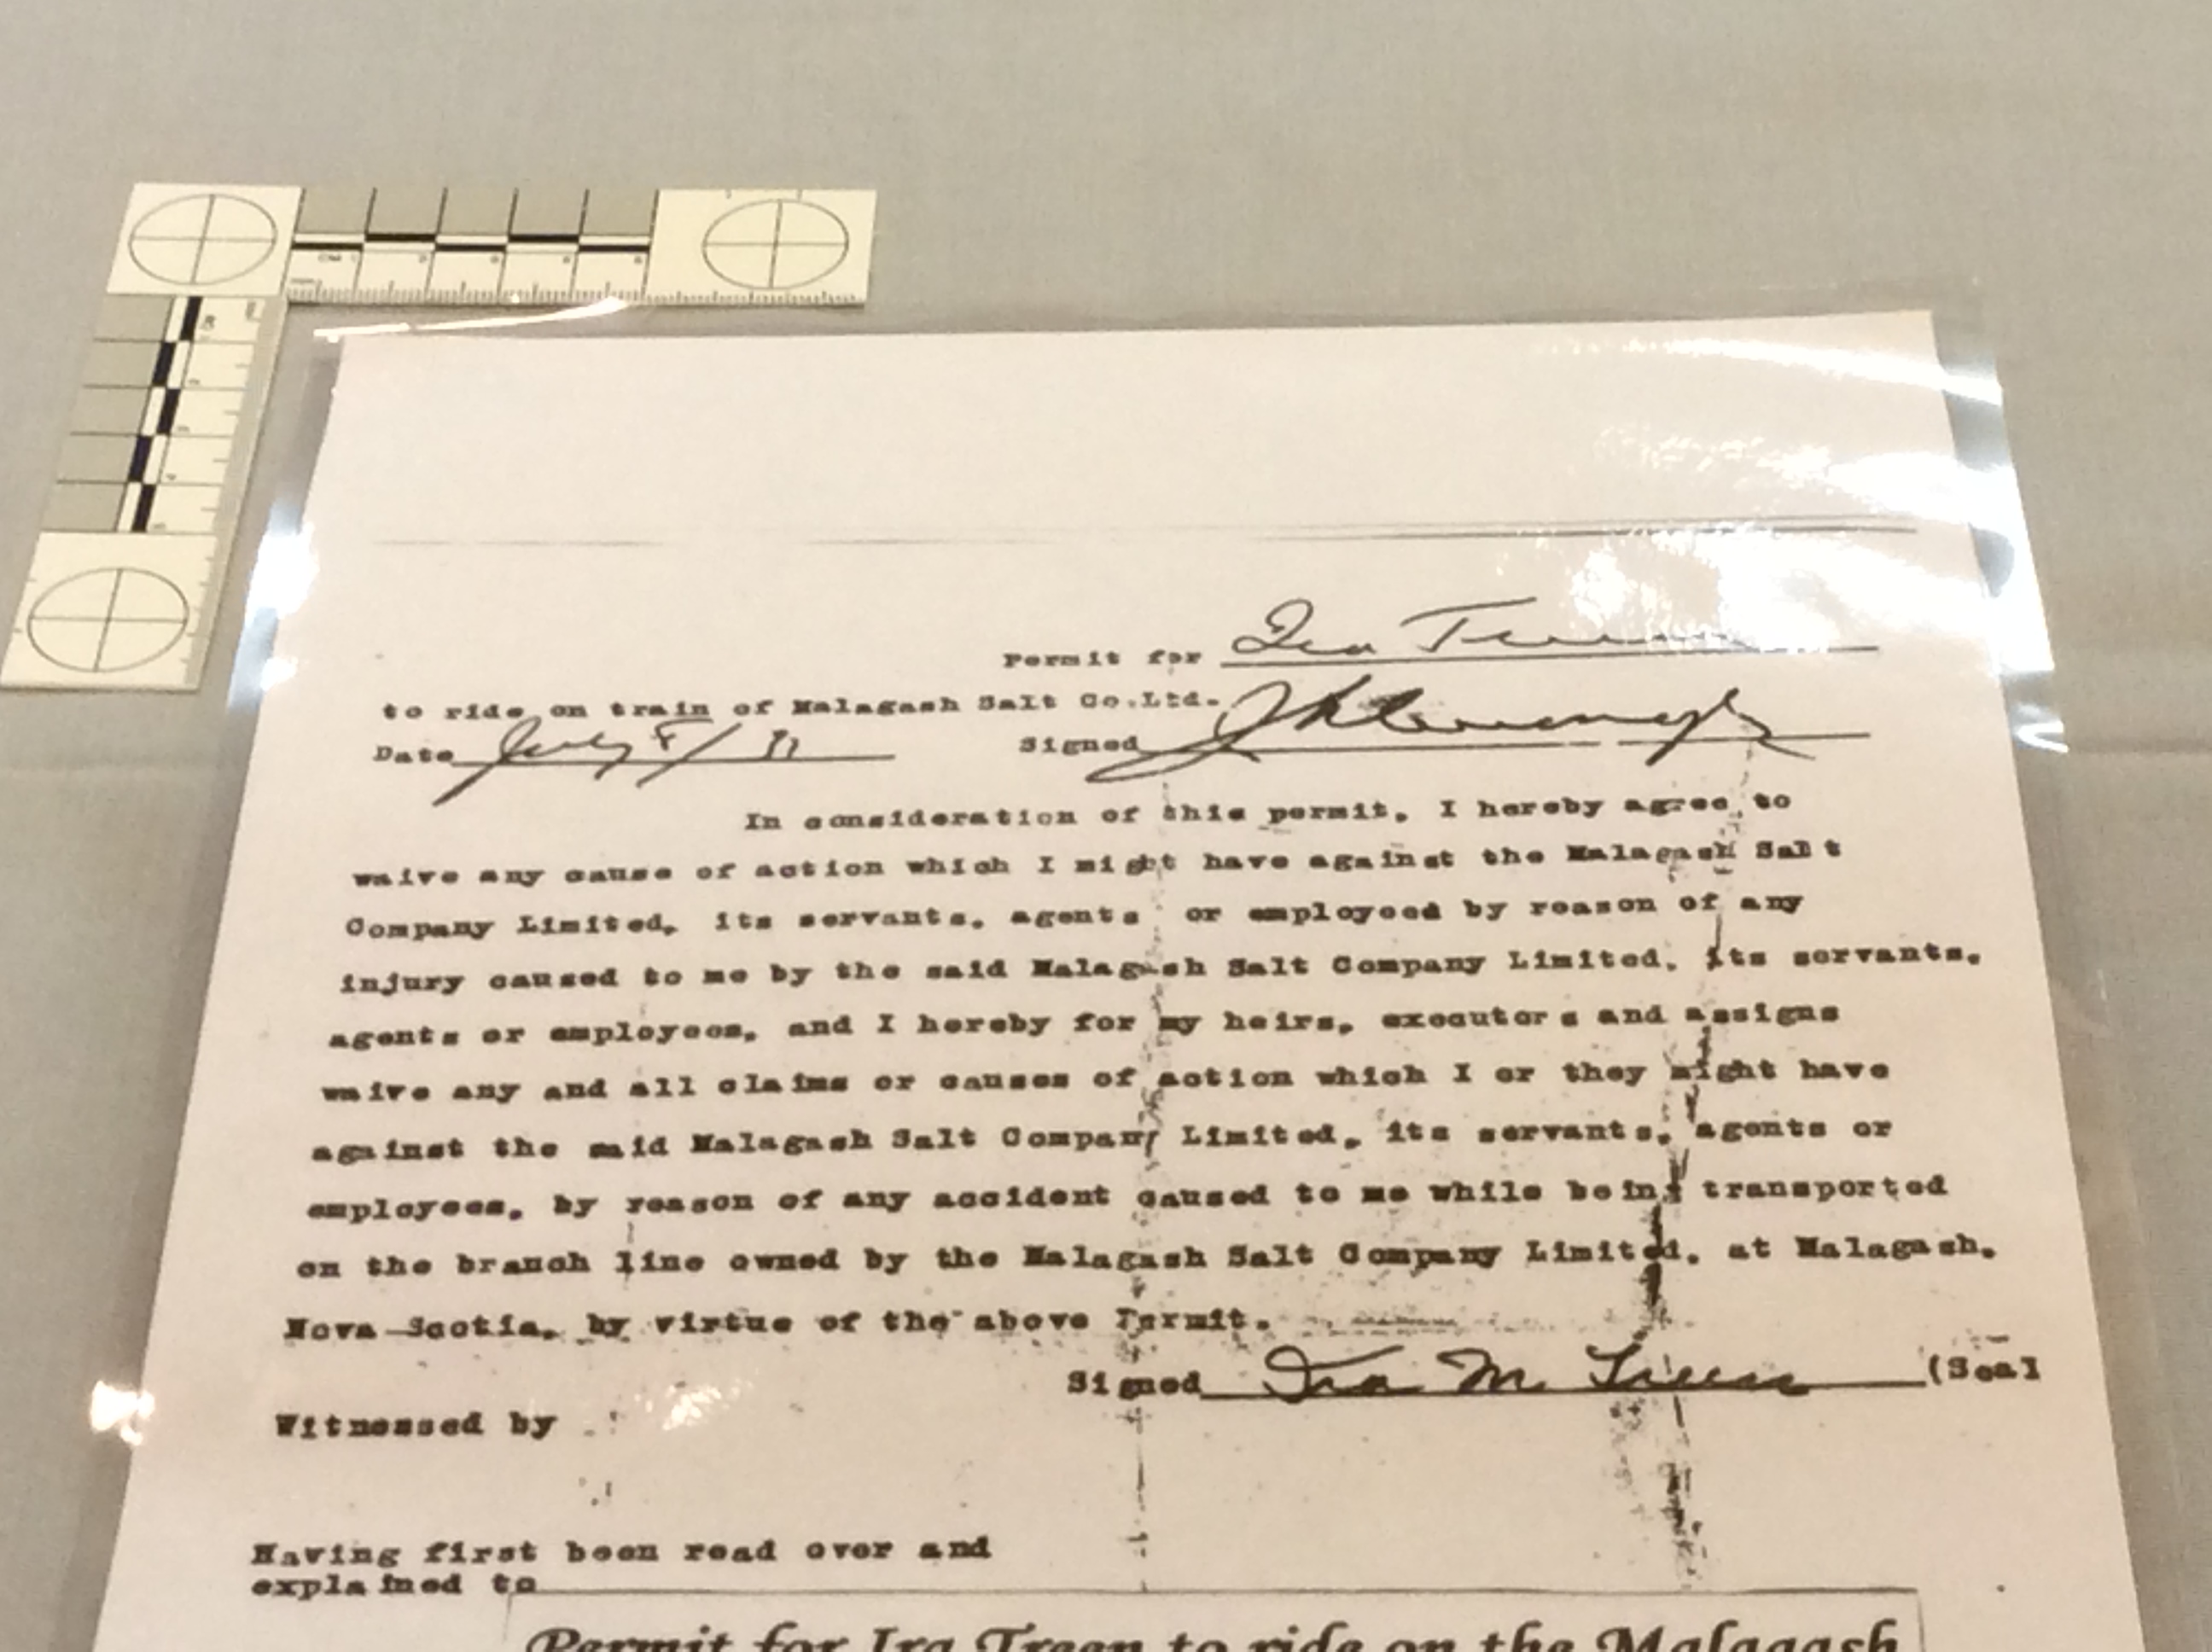 Permit for Ira Treen
to ride on train of Malagash Salt Co.Ltd.
Date July 8/ 31 Signed
In consideration of this permit, I hereby agree to
waive any cause of action which I might have against the Malagash Salt
Company Limited, its servants, agents or employeed by reason of any
injury caused to me by the said Malagash Salt Company Limited, its servants,
agents or employees, and I hereby for my heirs, executors and assigns
waive any and all claims or causes of action which I or they might have
against the said Malagash Salt Company Limited, its servants, agents or
employees, by reason of any accident caused to me while being transported
on the branch line owned by the Malagash Salt Company Limited, at Malagash,
Nova Scotia, by virtue of the above Permit.
Signed Ira M. Treen (Seal
Witnessed by
Having first been read over and
explained to
Permit for Ira Treen to ride on the Malagash